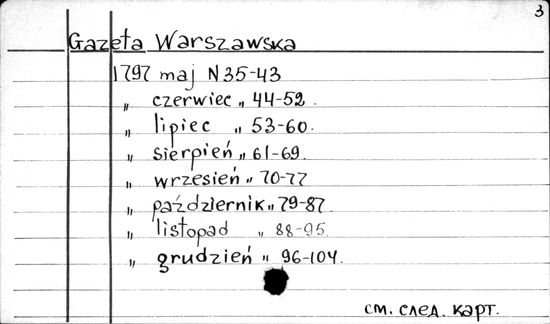 3
Gazeta Warszawska
1797 maj N 35-43
„ czerwiec „ 44-52.
„ lipiec „ 53-60.
„ sierpień „ 61-69.
„ wrzesień „ 70-77
„ październik „ 79-87
„ listopad „ 88-95
„ grudzień „ 96-104.
см. след. карт.